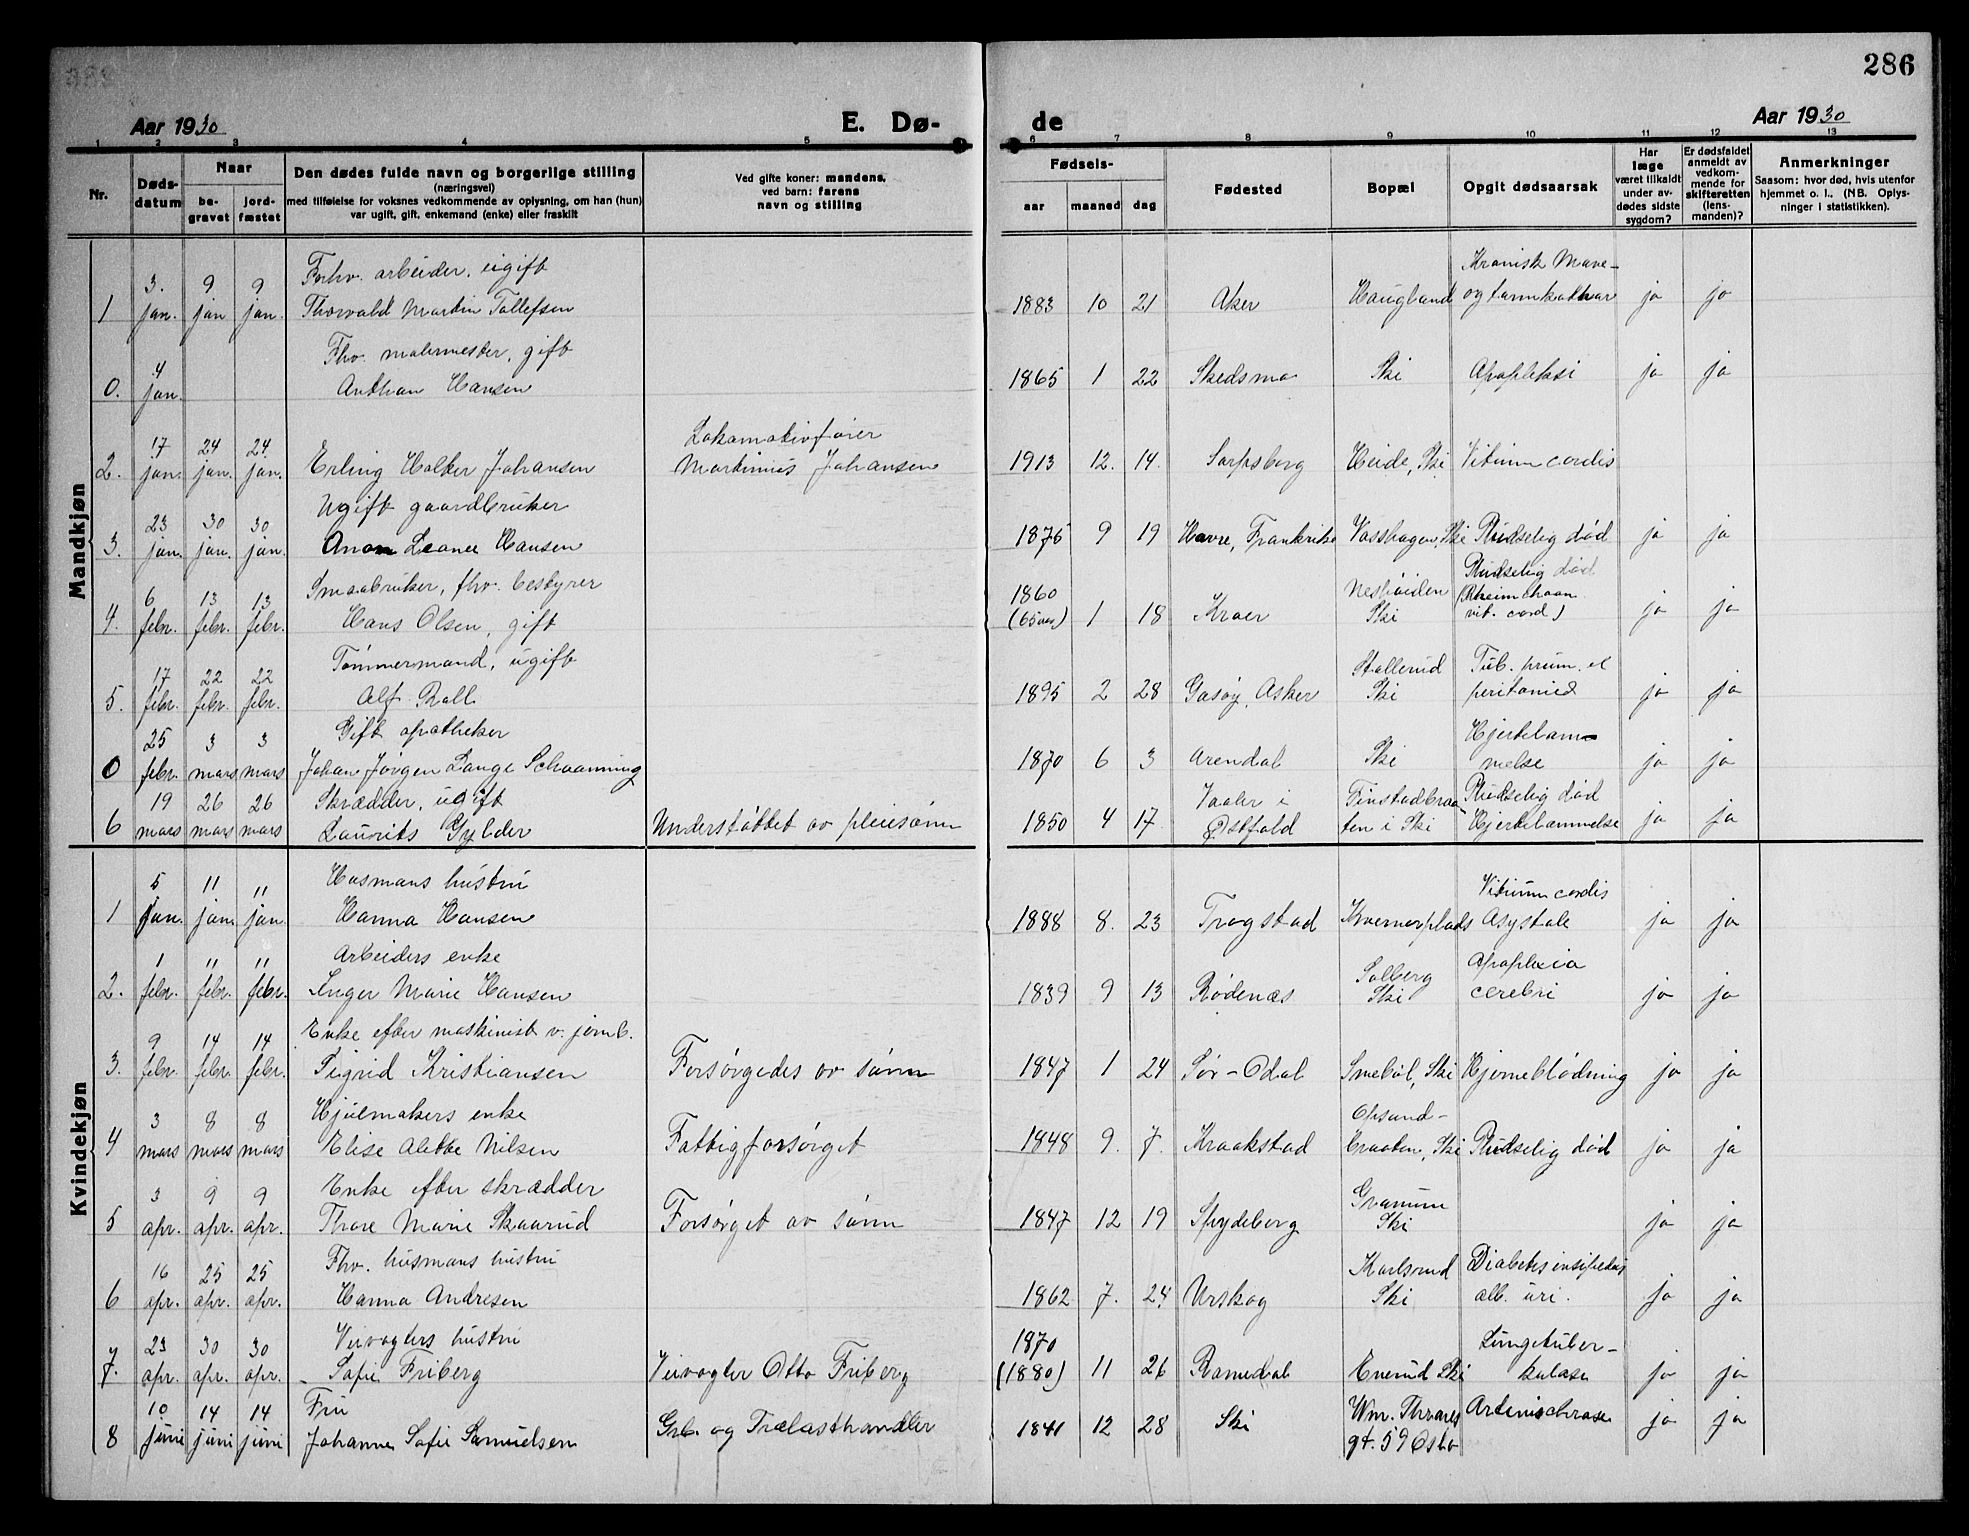 286
Aar 1930
E. Dø-
de
Aar 1930
1 2 3 4 5 6 7 8 9 10 11 12 13
Nr.
Døds-
datum
Naar
be-
gravet
jord-
fæstet
Den dødes fulde navn og borgerlige stilling
(næringsvei)
med tilføielse for voksnes vedkommende av oplysning, om han (hun)
var ugift, gift, enkemand (enke) eller fraskilt
Ved gifte koner: mandens,
ved barn: farens
navn og stilling
Fødsels-
aar
maaned
dag
Fødested
Bopæl
Opgit dødsaarsak
Har
læge
været tilkaldt
under av-
dødes sidste
sygdom?
Er dødsfaldet
anmeldt av
vedkom-
mende for
skifteretten
(lens-
manden)?
Anmerkninger
Saasom: hvor død, hvis utenfor
hjemmet o. l., (NB. Oplys-
ninger i statistikken).
Mandkjøn
3. 9 9 Forhv. arbeider, ugift Kronisk Mave-
1 jan. jan jan. Thorvald Martin Tollefsen 1883 10 21 Aker Haugland og tarmkathar ja ja
4 Fhv. malermester, gift
0. jan. Anthan Hansen 1865 1 22 Skedsmo Ski Apopleksi ja ja
17 24 24. Lokomotivfører
2. jan. jan. jan. Erling Holker Johansen Martinius Johansen 1913 12. 14. Sarpsborg Heide, Ski Vitium cordis ja ja
23 30 30 Ugift gaardbruker
3. jan. jan. jan. Hansen 1875 9 19 Havre, Frankrike Vasshagen, Ski Pludselig død ja ja
6 13 13 Smaabruker, fhv. bestyrer 1860 Nesheiden Pludselig død
4. febr. febr. febr. Hans Olsen, gift (65 ) 1 18 Kroer Ski vit. cord) ja ja
17 22 22 Tømmermand, ugift Stallerud Tub. et
5. febr. febr. febr. Alf Roll 1895 2 28 Gåsøy, Asker Ski ja ja
25 3 3 Gift apotheker Hjertelam-
0 febr. mars mars Johan Jørgen Lange Schaanning 1870 6 3 Arendal Ski melse ja ja
19 26 26 Skrædder, ugift Vaaler i Finstadbraa- Pludselig død
6 mars mars mars Laurits Gylder Understøttet av pleiesønn 1850 4 17 Østfold ten i Ski Hjertelammelse ja ja
Kvindekjøn
5 11 11 Husmans hustru Vitium cordis
1 jan. jan. jan. Hanna Hansen 1888 8. 23 Trøgstad Kvernerplads Asystole ja ja
1 11 11 Arbeiders enke Solberg Apoplexia
2. febr. febr. febr. Inger Marie Hansen 1839 9 13 Rødenæs Ski cerebri ja ja
9 14 14 Enke efter maskinist v. jernb.
3. febr. febr. febr. Sigrid Kristiansen Forsørgedes av sønn 1847 1 24 Sør-Odal Smebøl, Ski Hjerneblødning ja ja
3 8 8 Hjulmakers enke Opsand-
4 mars mars mars Elise Alette Nilsen Fattigforsørget 1848 9. 7. Kraakstad braaten, Ski Pludselig død ja ja
3 9 9 Enke efter skrædder Granum
5 apr. apr. apr. Thore Marie Skaarud Forsørget av sønn 1847 12 19 Spydeberg Ski ja ja
16 25 25 Fhv. husmans hustru Karlsrud Diabetes insipidus
6 apr. apr. apr. Hanna Andresen 1862 7. 24 Urskog Ski alb. uri. ja ja
23 30 30 Veivogters hustru 1870 Lungetuber-
7. apr. apr. apr. Sofie Friberg Veivogter Otto Friberg (1880) 11 26 Romedal Enerud Ski kulose ja ja
10 14 14 Fru Wm. Thranes
8 juni juni juni Johanne Sofie Samuelsen Grb. og Trælasthandler 1841 12 28 Ski gt. 59 Oslo ja ja